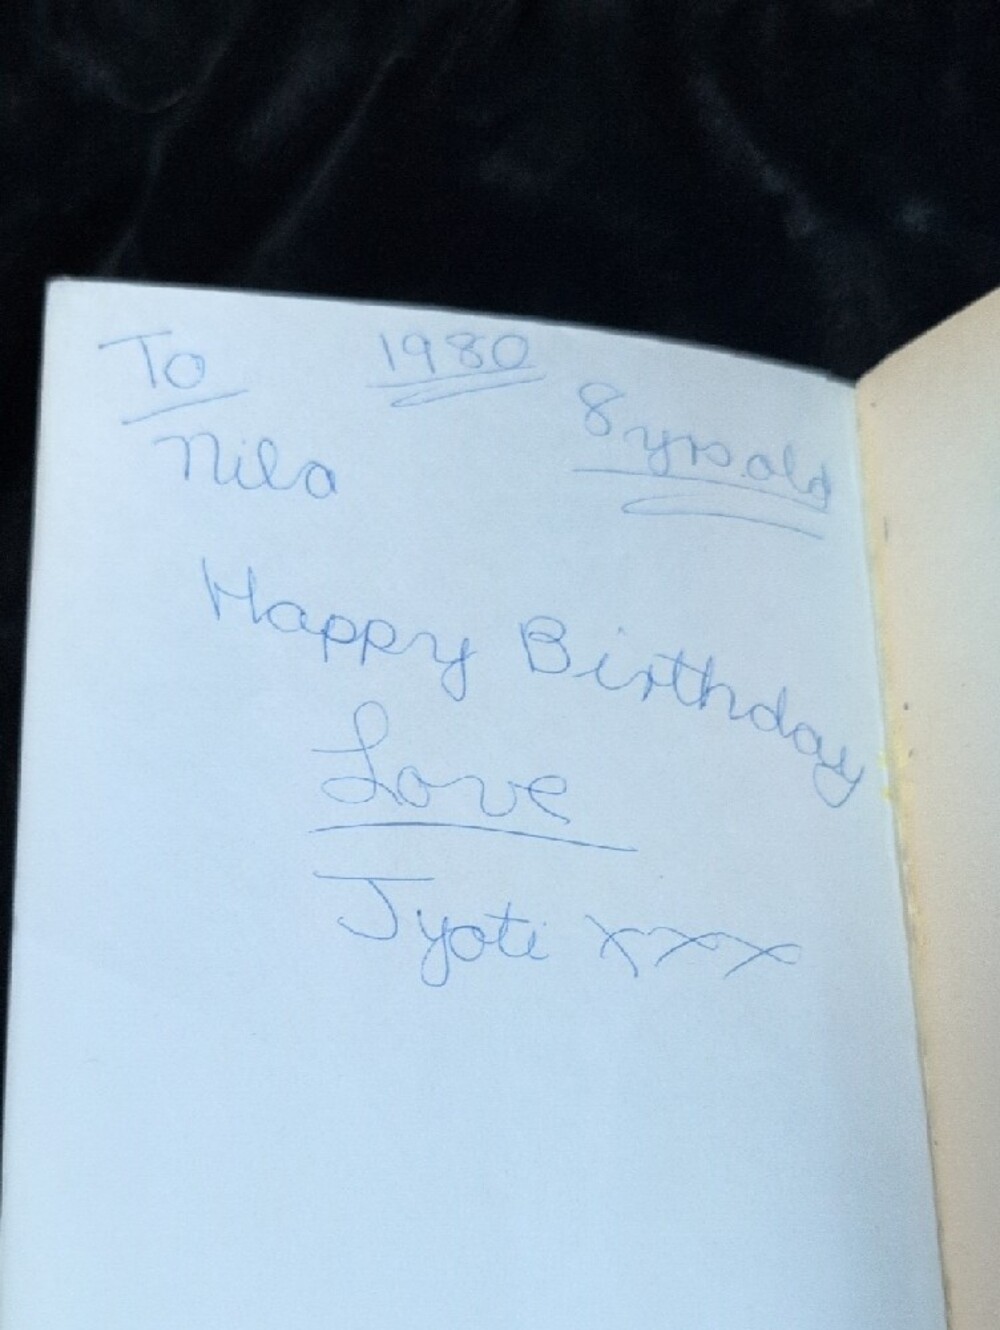 To 1980
8 yrs.old
Nila
Happy Birthday
Love
Jyoti xxx